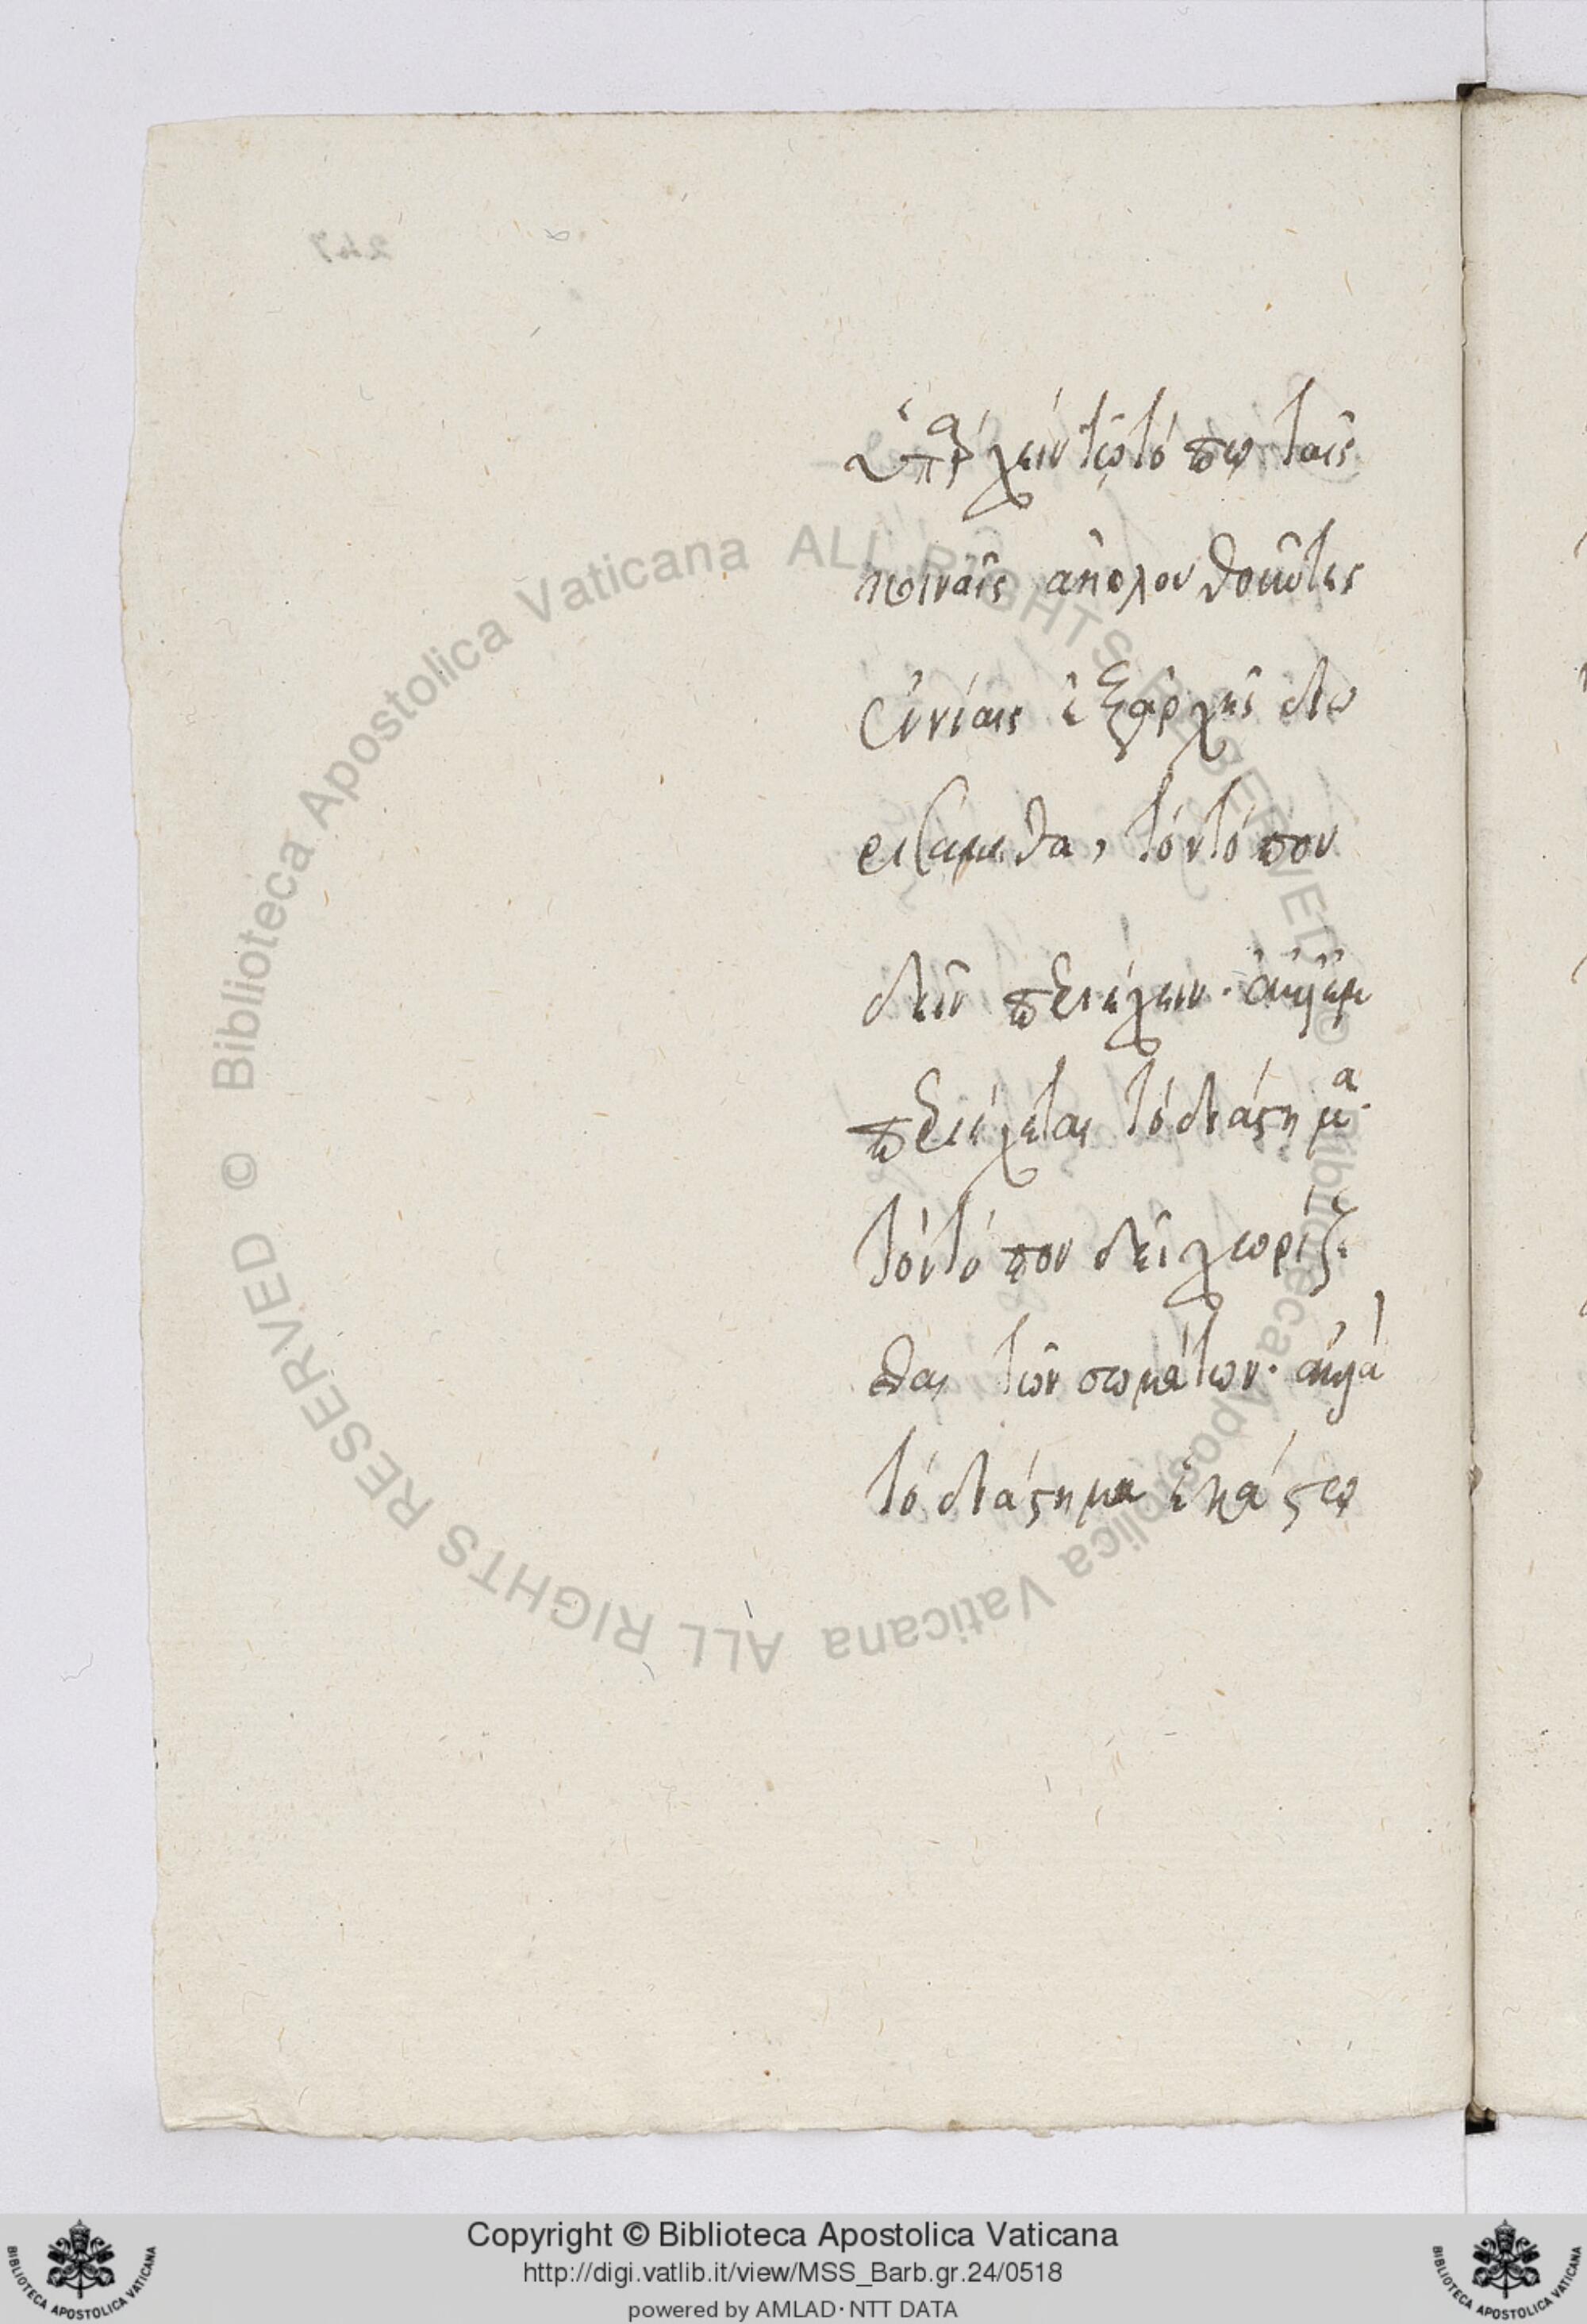 247
ὑπάρχειν τῷ τόπῳ ταῖς
κοιναῖς ἀκολουθοῦντες
ἐννίαις ἐξαρχῆς διω
ρισάμεθα, τὸν τόπον
δεῖν περιέχειν.
περιέχεται τὸ διάστημα.
τὸν τόπον δεῖ χωρίζε
σθαι τῶν σωμάτων.
τὸ διάστημα ἑκάστῳ
© Biblioteca Apostolica Vaticana ALL RIGHTS RESERVED © Biblioteca Apostolica Vaticana ALL RIGHTS RESERVED
Copyright © Biblioteca Apostolica Vaticana
http://digi.vatlib.it/view/MSS_Barb.gr.24/0518
powered by AMLAD · NTT DATA
BIBLIOTECA APOSTOLICA VATICANA
BIBLIOTECA APOSTOLICA VATICANA